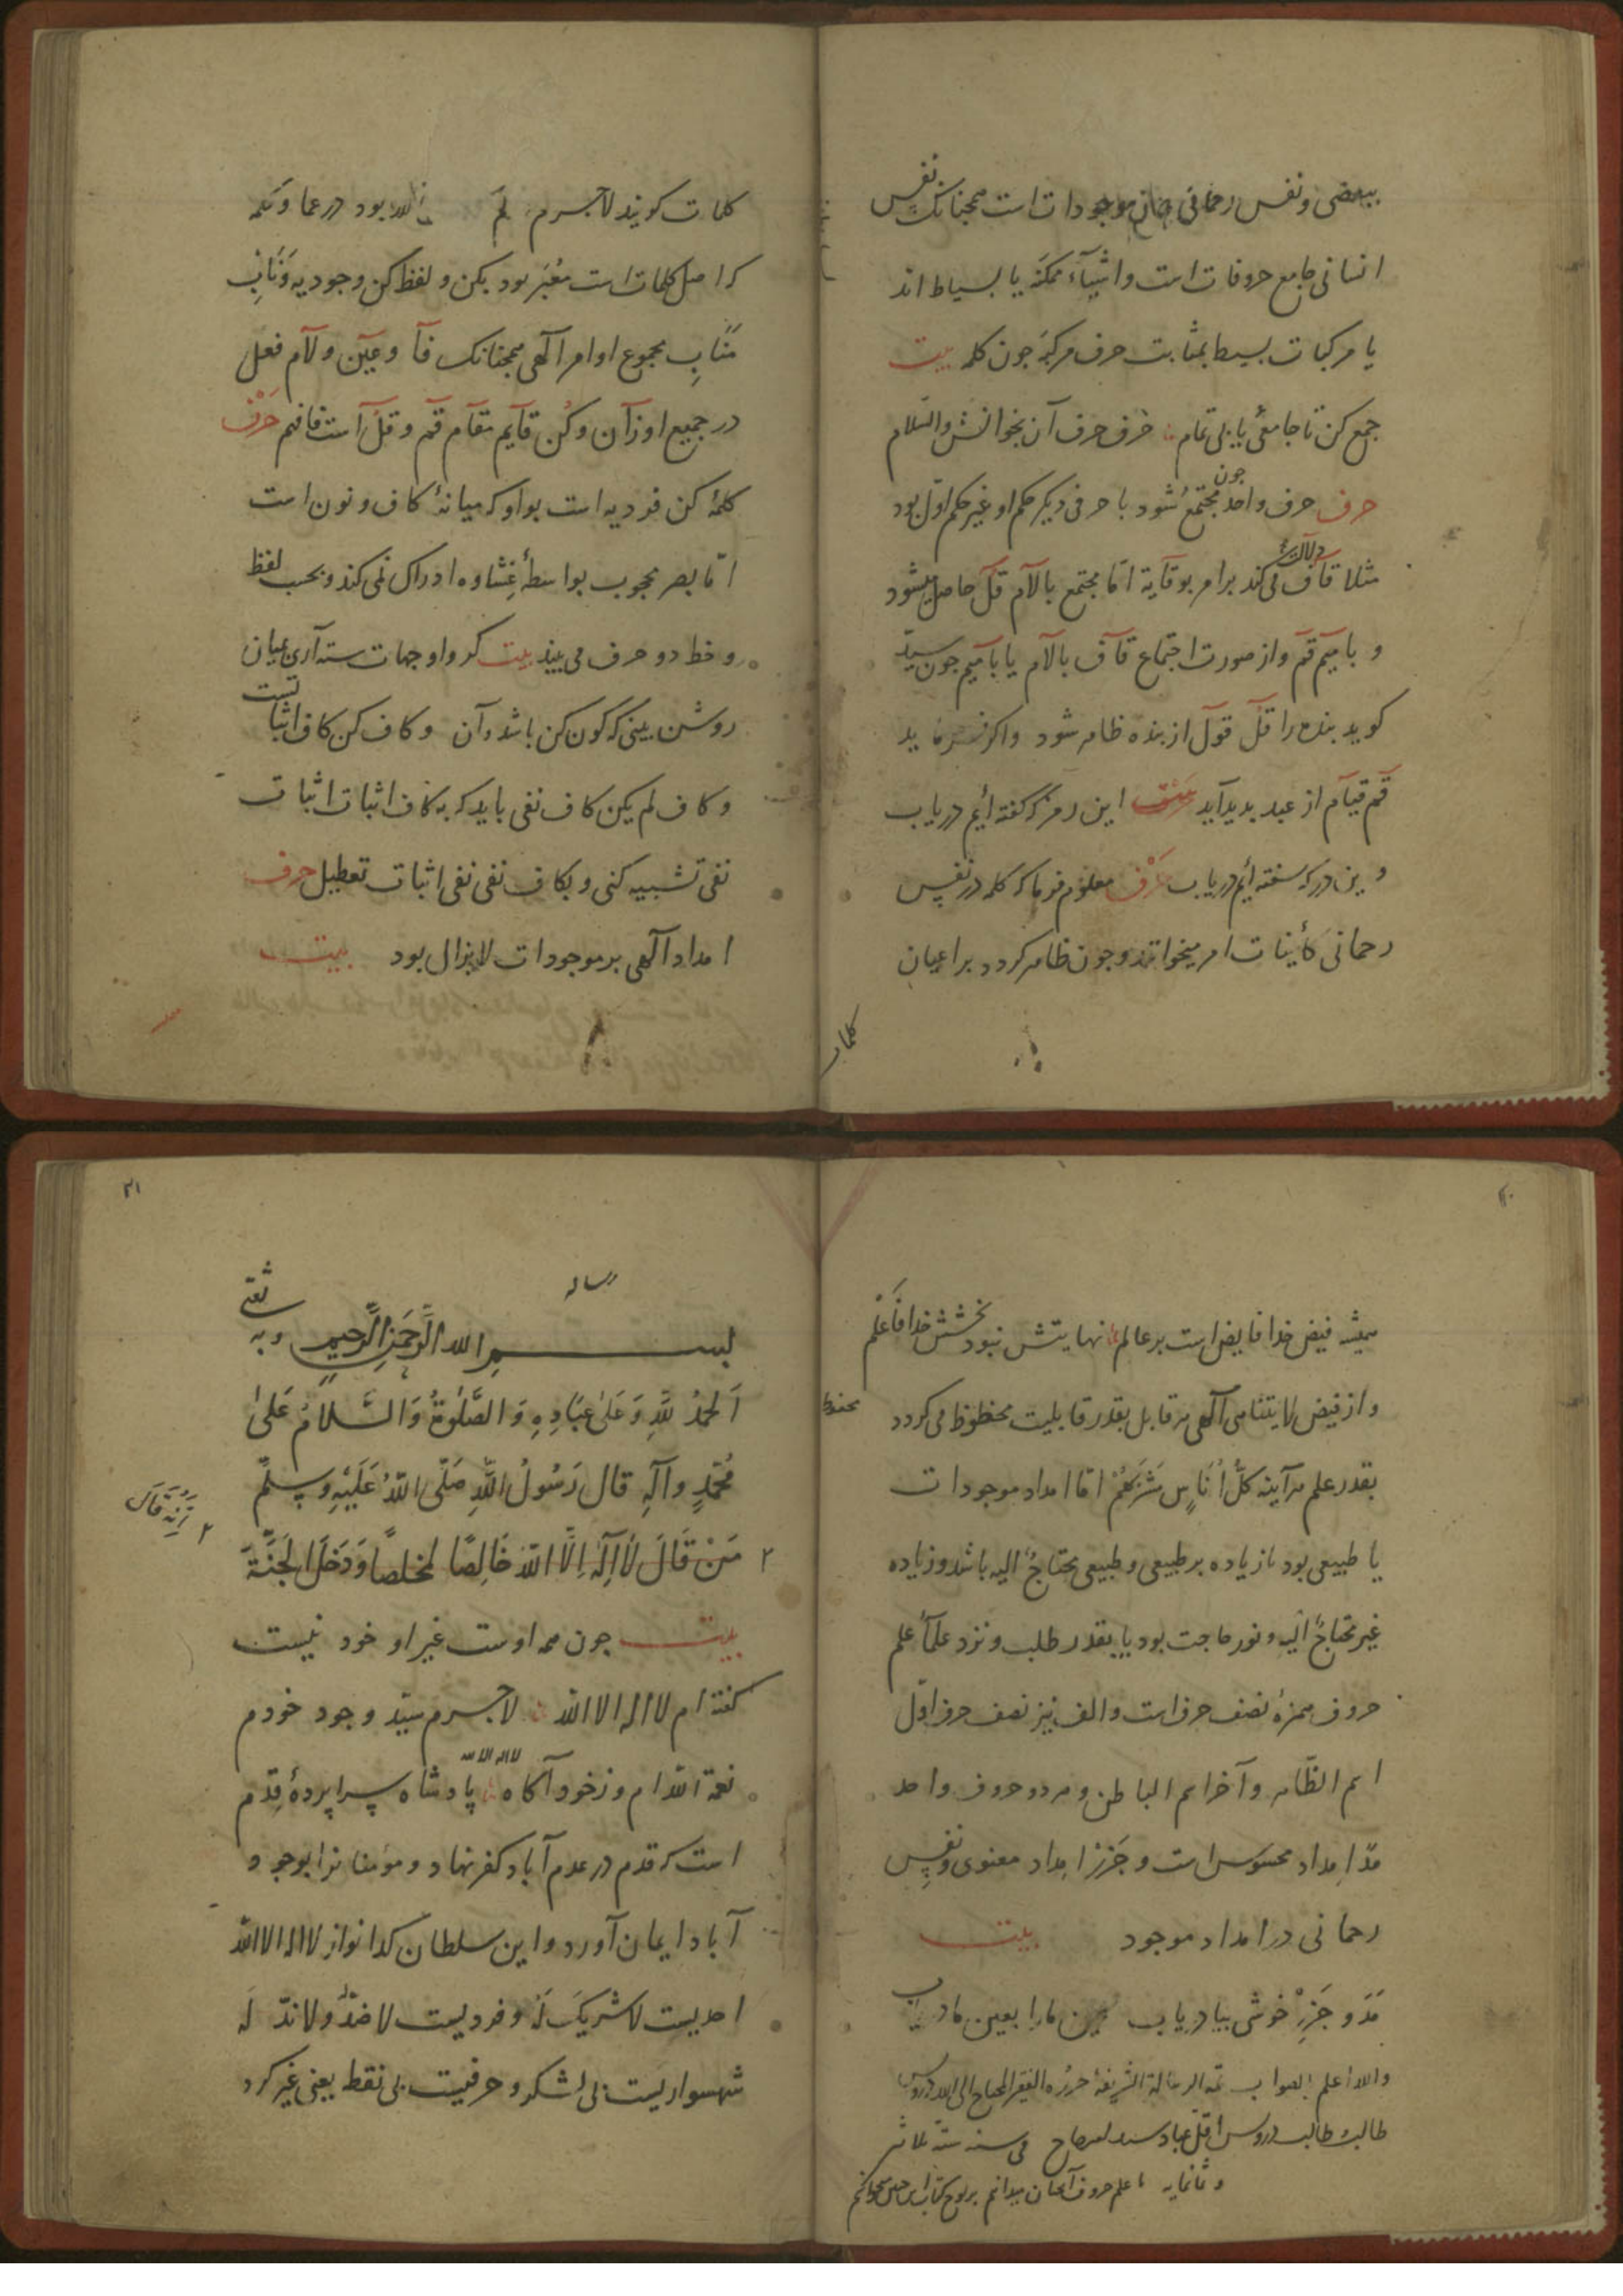 ببعضی و نفس رحمانی جامع موجودات است همچنانک نفس
انسانی جامع حروفات است و اشیآء ممکنه یا بسیاط اند
یا مرکبات بسیط بمثابت حرف مرکبه جون کلمه بیت
جمع کن تا جامعی یابی تمام حرف حرف آن بخوانش والسّلام
حرف حرف واحد جون مجتمع شود با حرفی دیکر حکم او غیر حکم اوّل بود
مثلا قآف دلالت می کند بر امر بوقایة امّا مجتمع بالآم قل حاصل میشود
و بامیم قم و از صورت اجتماع قآف بالآم یا بامیم جون سیّد
کوید بنده را قل قول از بنده ظاهر شود واکر فرماید
قم قیآم از عبد بدید آید این رمز که کفته أیم دریاب
وین در که سفته أیم دریاب حرف معلوم فرما که کلمه در نفس
رحمانی کأینات امر میخوانند و جون ظاهر کردد بر اعیان
کلمات
کلمات کویند لاجرم لم الله بود در عما و کلمه
که اصل کلمات است معبّر بود بکن و لفظ کن وجودیه و نایب
مناب مجموع اوامر آلهی همچنانک فآ و عین و لآم فعل
در جمیع اوزآن و کن قآیم مقآم قم و قل آست فافهم حرف
کلمهٔ کن فردیه است بواو که میانهٔ کاف و نون است
امّا بصر محجوب بواسطهٔ غشاوه ادراک نمی کند و بحسب لفظ
و خط دو حرف می بیند بیت کر واو جهات سته آری بمیان
روشن بینی که کون کن باشد آن و کاف کن کاف اثباتست
و کاف لم یکن کاف نفی باید که به کاف اثبات اثبات
نفی تشبیه کنی و بکاف نفی نفی اثبات تعطیل حرف
امداد آلهی بر موجودات لایزال بود بیت
همیشه فیض خدا فایض است بر عالم نهایتش نبود بخشش خدا فاعلم
و از فیض لایتناهی آلهی هر قابل بقدر قابلیت محظوظ می کردد
محظوظ
بقدر علم هرآینه کلّ أناس مشربهم امّا امداد موجودات
یا طبیعی بود یا زیاده بر طبیعی و طبیعی محتاج الیه باشد و زیاده
غیر محتاج الیه و نور حاجت بود یا بقدر طلب و نزد علمآء علم
حروف همزه نصف حرف است والف نیز نصف حرف اوّل
اسم الظّاهر و آخر اسم الباطن و هر دو حروف واحد
مدّ امداد محسوس است و جزر امداد معنوی و نفس
رحمانی در امداد موجود بیت
مدّ و جزر خوشی بیا دریاب عین ما را بعین ما دریاب
والله اعلم بالصواب تمة الرسالة الشریفة حرّره الفقیر المحتاج الی الله درویش
طالب طالب درویش اقلّ عباد فی سنه ستة ثلاثین
و ثمانمایه ما علم حروف آنچنان میدانیم بر لوح کتاب
۳۱
رساله
بسم الله الرّحمن الرّحیم و به ثقتی
ألحمد للّه و علی عباده و الصّلوة و السّلام علی
محمّد وآله قال رسول اللّه صلّی اللّه علیه وسلّم
من قال لا إله الّا اللّه خالصا مخلصا و دخل الجنّة
بیت جون همه اوست غیر او خود نیست
کفته ام لا اله الا الله لاجرم سیّد وجود خودم
نعمة اللّه ام و زخود آکاه لا اله الا الله پادشاه سراپردهٔ قدم
است که قدم در عدم آباد کفر نهاد و مؤمنانرا بوجود
آباد ایمان آورد و این سلطان کدا نواز لا اله الا اللّه
احدیست لا شریک له و فردیست لا ضدّ و لا ندّ له
شهسواریست بی لشکر و حرفیست بی نقط یعنی غیر کرد